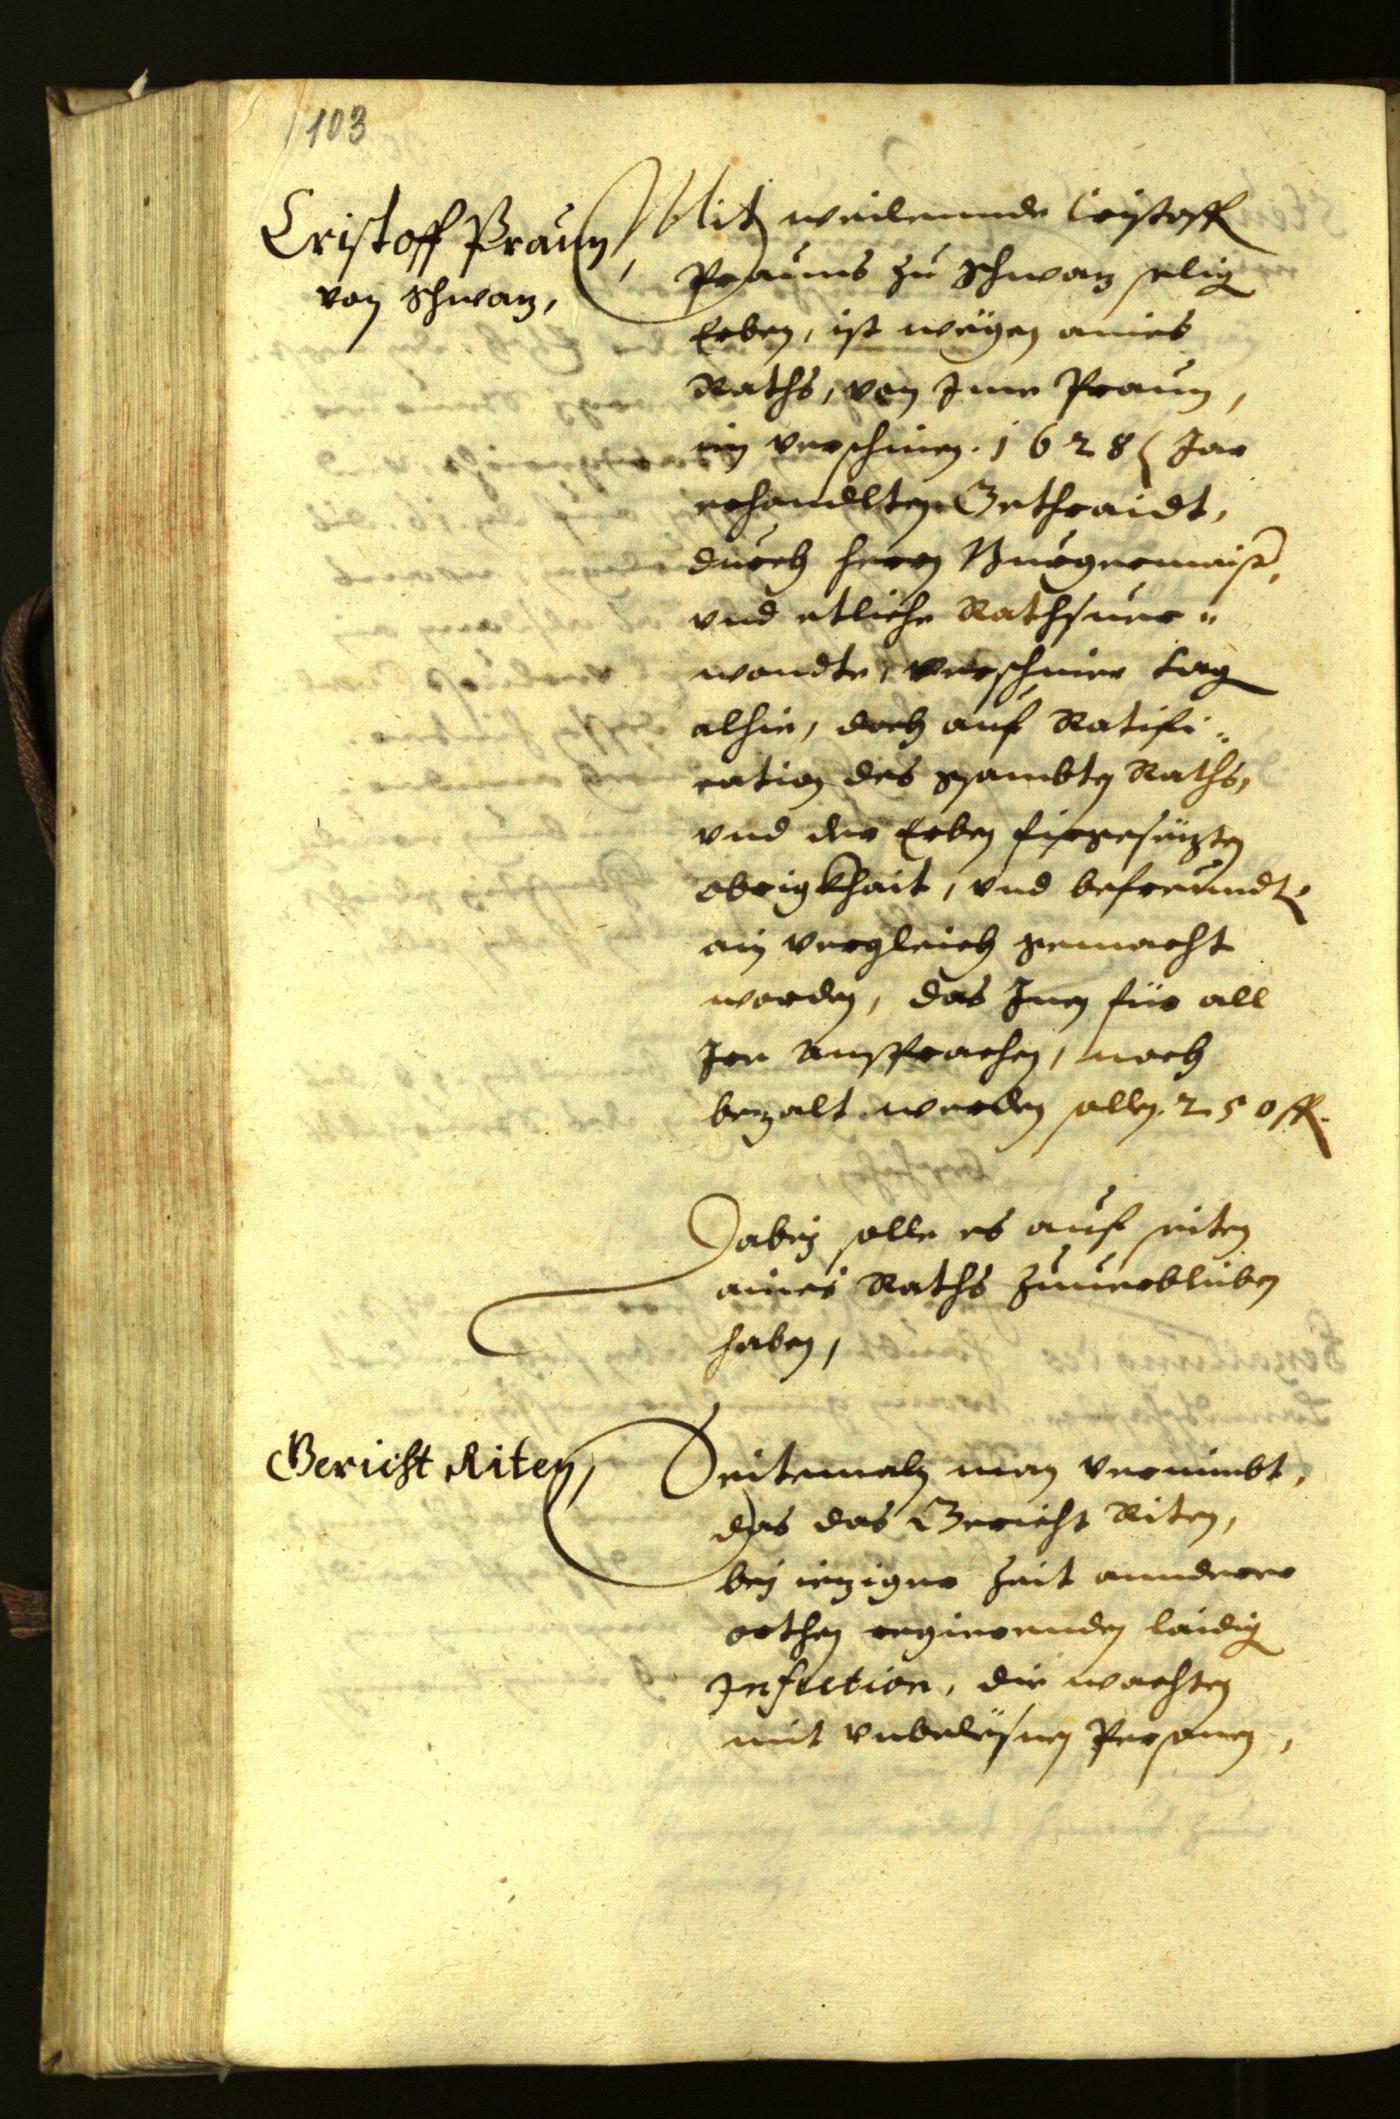 103
Cristoff Praun
von Schwaz,
Mit weilennde Cristoff
Prauns zu Schwaz selig
Erben, ist wegen aines
Raths, von Jme Praun,
im verschinen 1628 Jar
erhandlten Gethraidt,
durch herrn Burgermaister,
vnd etliche Rathsuer-
wandte, verschiner tag
alhie, doch auf Ratifi-
cation des gsambten Raths,
vnd der Erben firgesezten
obrigkhait, vnd befreundt,
ain vergleich gemacht
worden, das Jnen für all
Jre ansprachen, noch
bezalt werden sollen 250 fl.
Dabei solle es auf seiten
aines Raths zuuerbliben
haben,
Gericht Riten,
Seitemaln man vernimbt,
das das Gericht Riten,
bei ieziger Zeit annderer
orthen regierenden laidig
Infection, die wachten
mit vnbelesnen Personen,